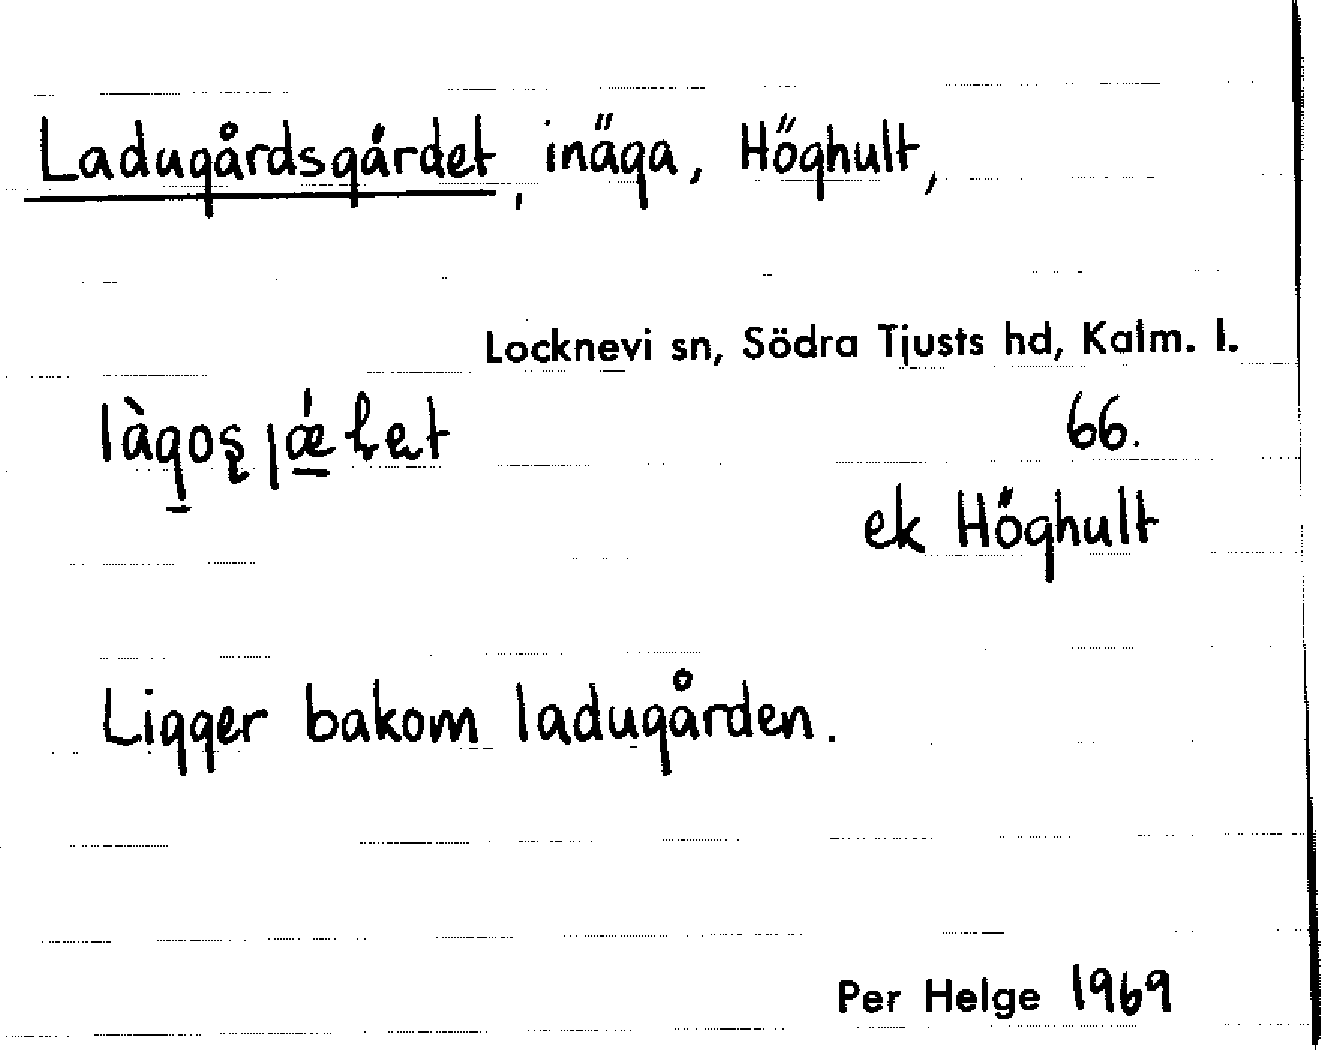 Ladugårdsgärdet, inäga, Höghult,
Locknevi sn, Södra Tjusts hd, Kalm. l.
66.
ek Höghult
Ligger bakom ladugården.
Per Helge 1969